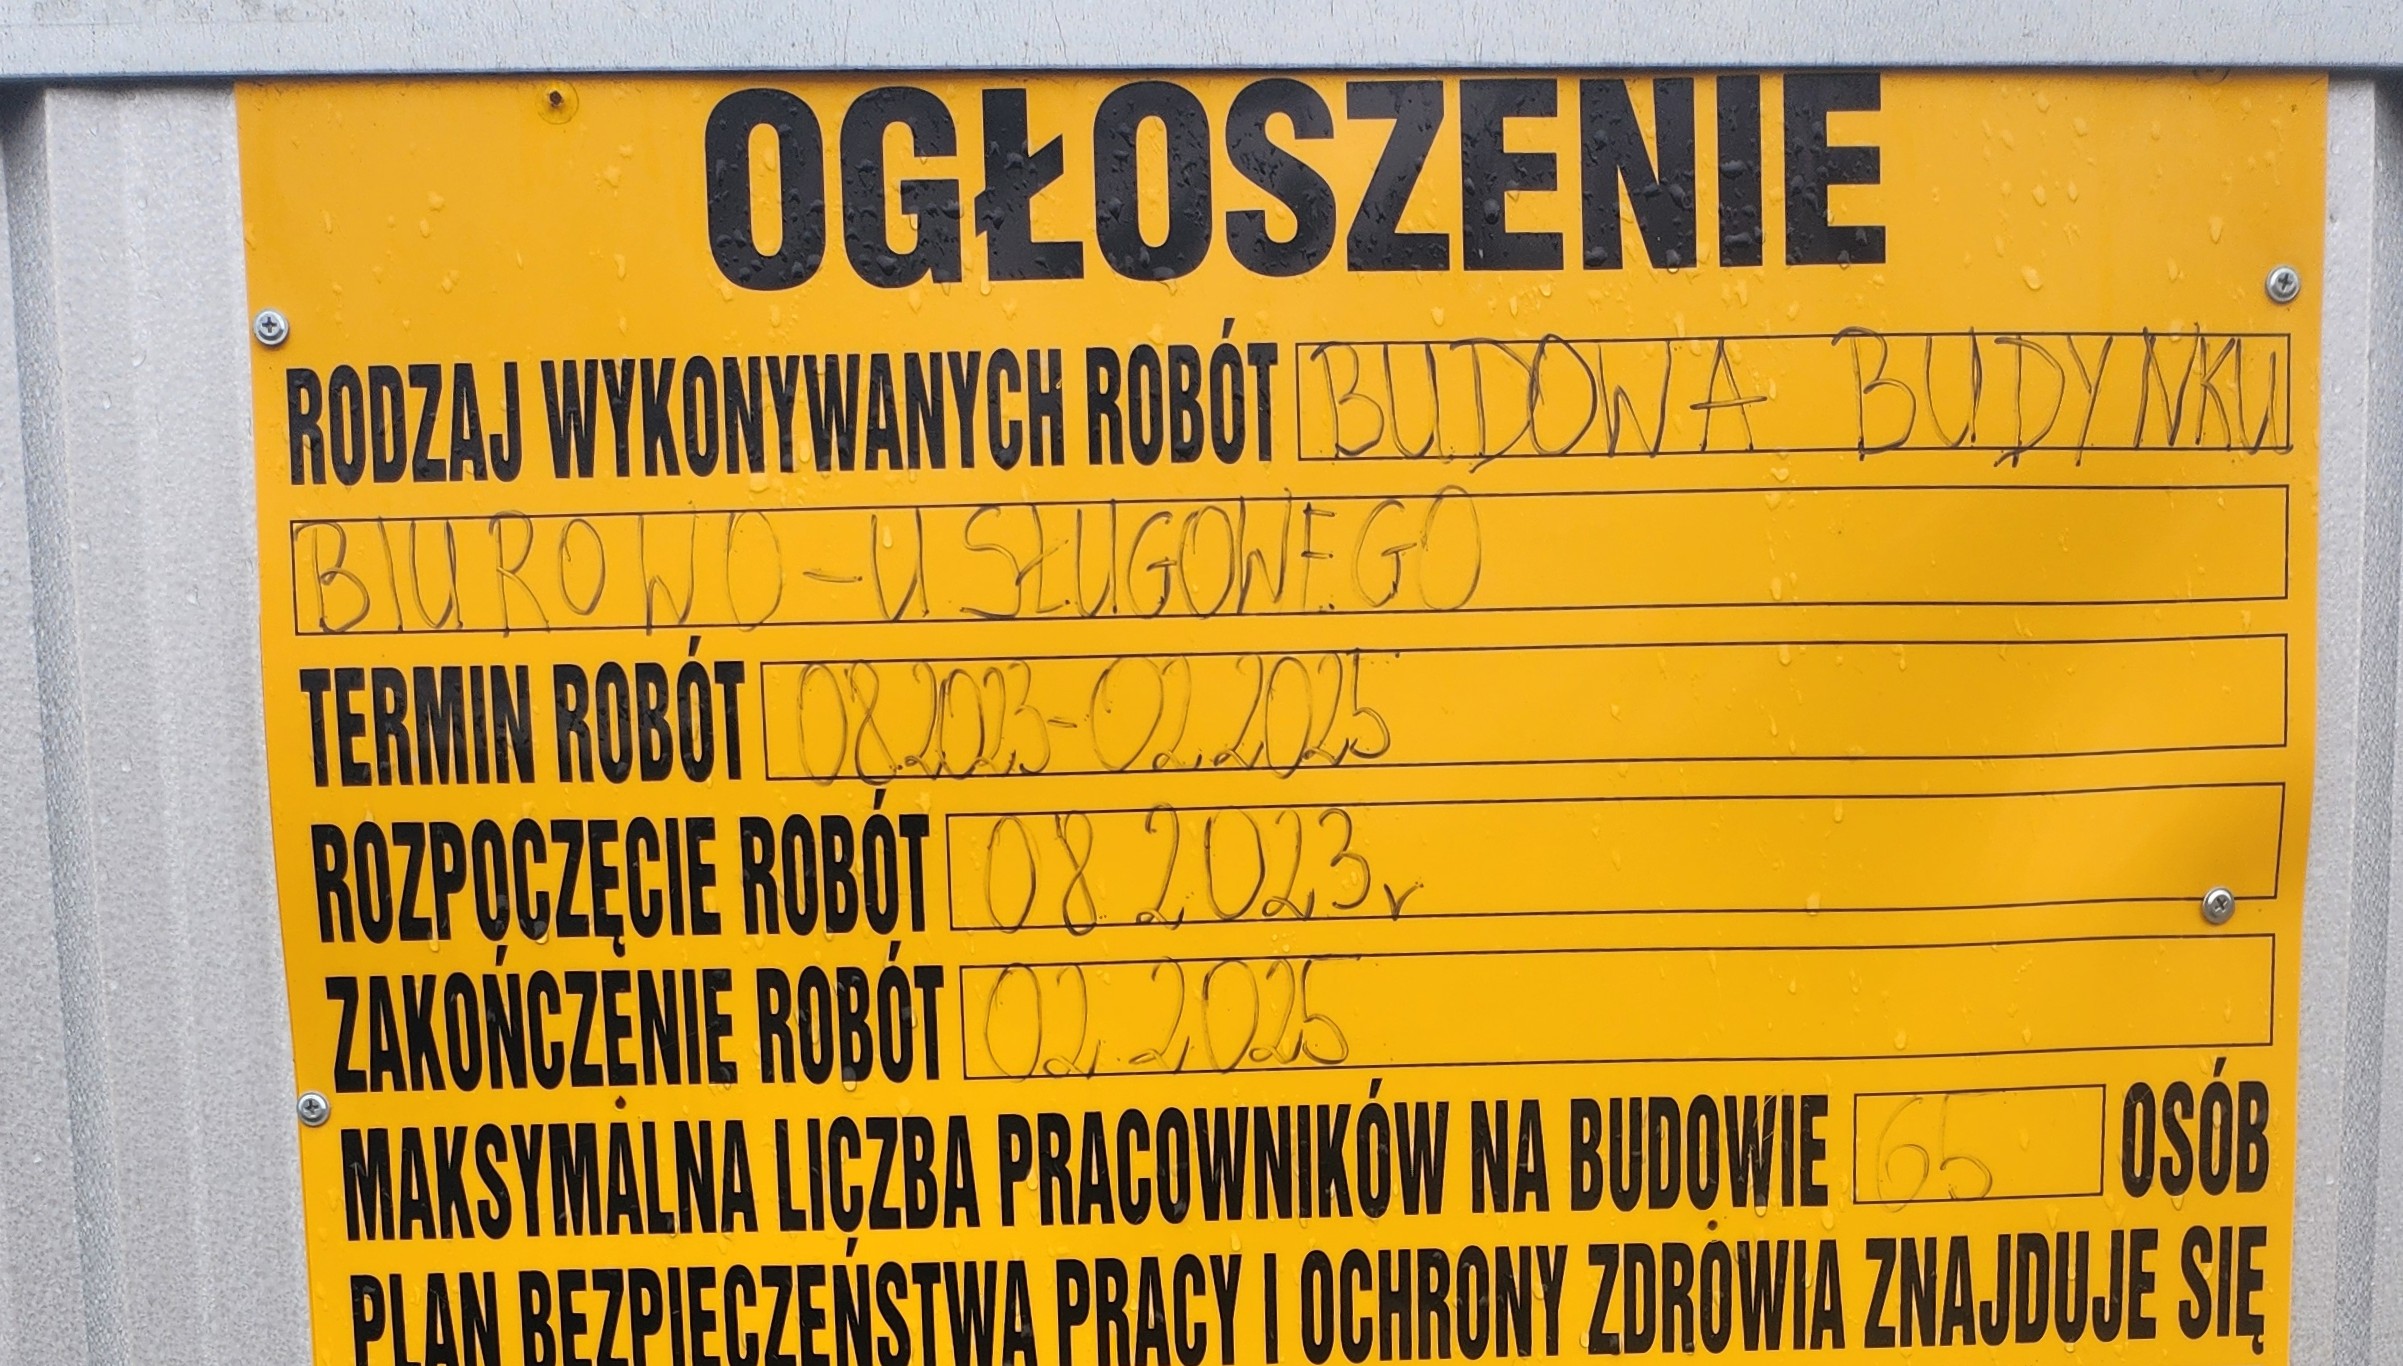 OGŁOSZENIE
RODZAJ WYKONYWANYCH ROBÓT BUDOWA BUDYNKU
BIUROWO-USŁUGOWEGO
TERMIN ROBÓT 08.2023-02.2025
ROZPOCZĘCIE ROBÓT 08 2023r
ZAKOŃCZENIE ROBÓT 02.2025
MAKSYMALNA LICZBA PRACOWNIKÓW NA BUDOWIE 65 OSÓB
PLAN BEZPIECZEŃSTWA PRACY I OCHRONY ZDROWIA ZNAJDUJE SIĘ